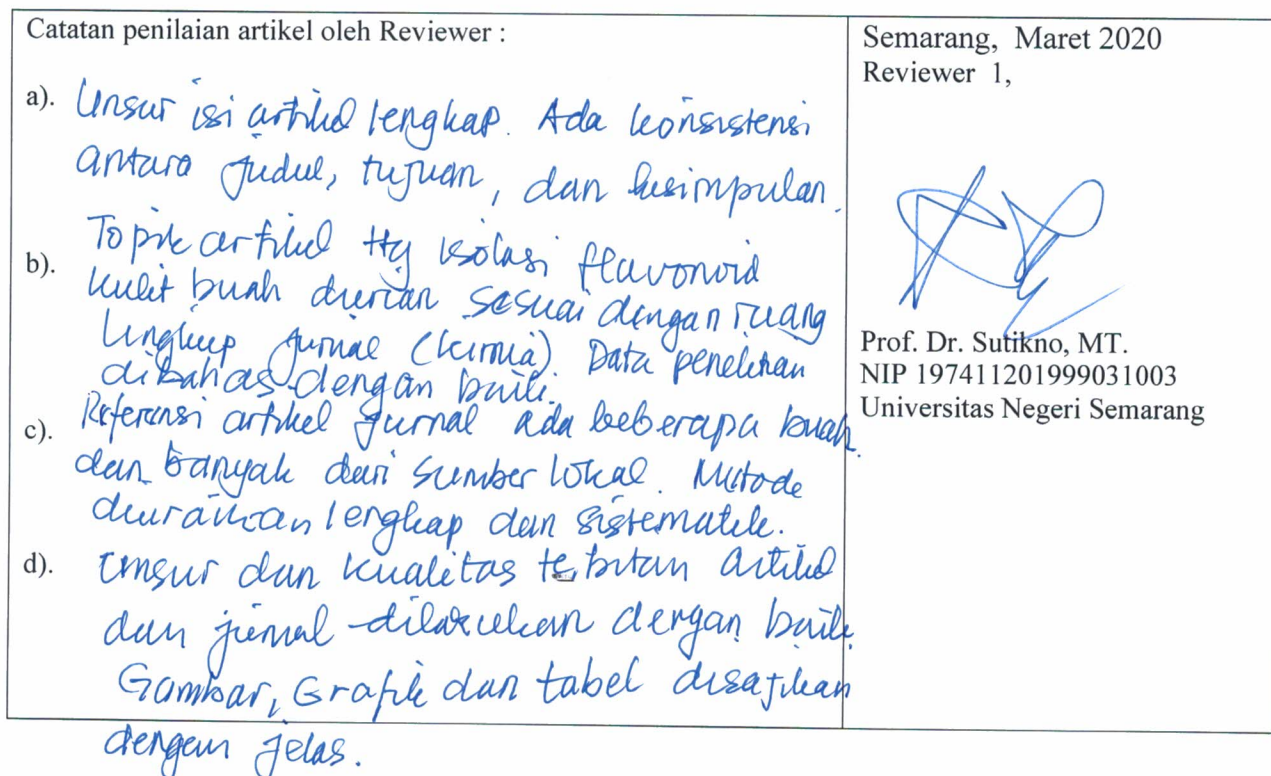 Catatan penilaian artikel oleh Reviewer :
a). Unsur isi artikel lengkap. Ada konsistensi
antara judul, tujuan, dan kesimpulan.
b). Topik artikel ttg isolasi flavonoid
kulit buah durian sesuai dengan ruang
lingkup jurnal (kimia). Data penelitian
dibahas dengan baik.
c). Referensi artikel jurnal ada beberapa buah.
dan banyak dari sumber lokal. Metode
diuraikan lengkap dan sistematik.
d). Unsur dan kualitas terbitan artikel
dan jurnal dilakukan dengan baik.
Gambar, Grafik dan tabel disajikan
dengan jelas.
Semarang, Maret 2020
Reviewer 1,
Prof. Dr. Sutikno, MT.
NIP 197411201999031003
Universitas Negeri Semarang